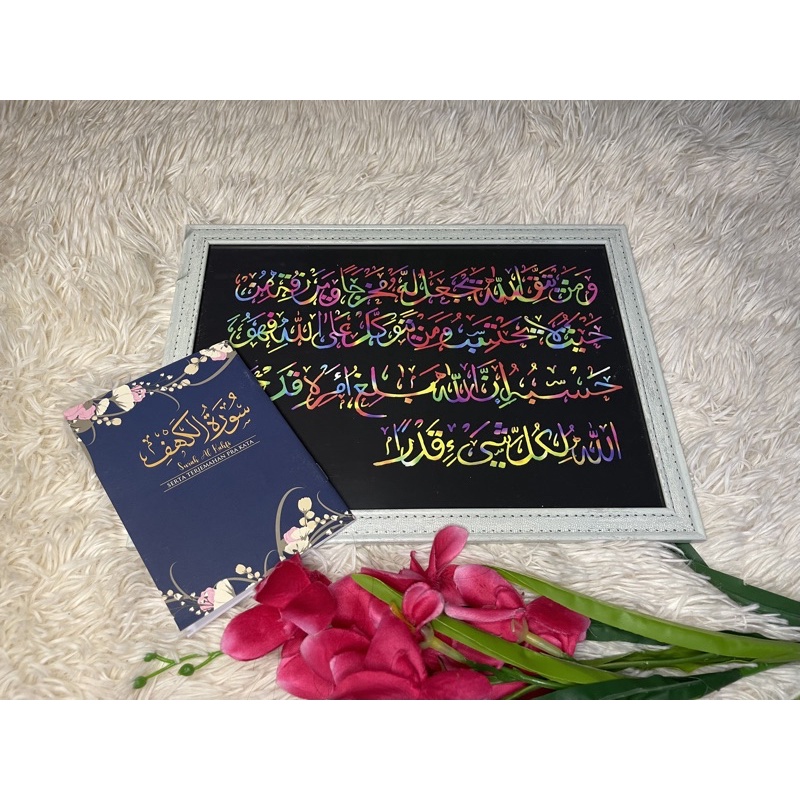 وَمَنْ يَتَّقِ اللَّهَ يَجْعَلْ لَهُ مَخْرَجًا وَيَرْزُقْهُ مِنْ
حَيْثُ لَا يَحْتَسِبُ وَمَنْ يَتَوَكَّلْ عَلَى اللَّهِ فَهُوَ
حَسْبُهُ إِنَّ اللَّهَ بَالِغُ أَمْرِهِ قَدْ
اللَّهُ لِكُلِّ شَيْءٍ قَدْرًا
سُورَةُ الْكَهْفِ
Surah Al Kahfi
SERTA TERJEMAHAN PRA KATA